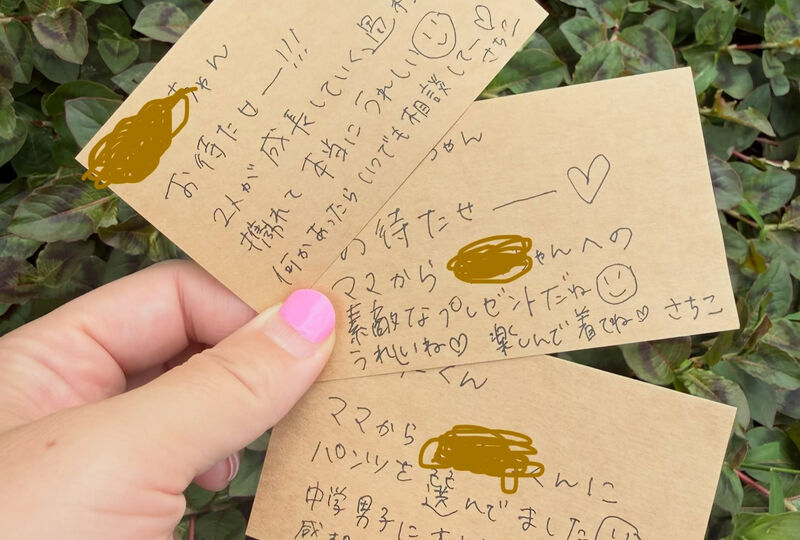 ちゃん
お待たせー!!!
2人が成長していく過
撮れて本当にうれしい
何かあったらいつでも相談してー♡
さちこ
ちゃん
の待たせー♡
ママから ゃんへの
素敵なプレゼントだね
うれしいね♡ 楽しんで着てね♡ さちこ
くん
ママから
パンツを くんに
選んでました
中学男子に